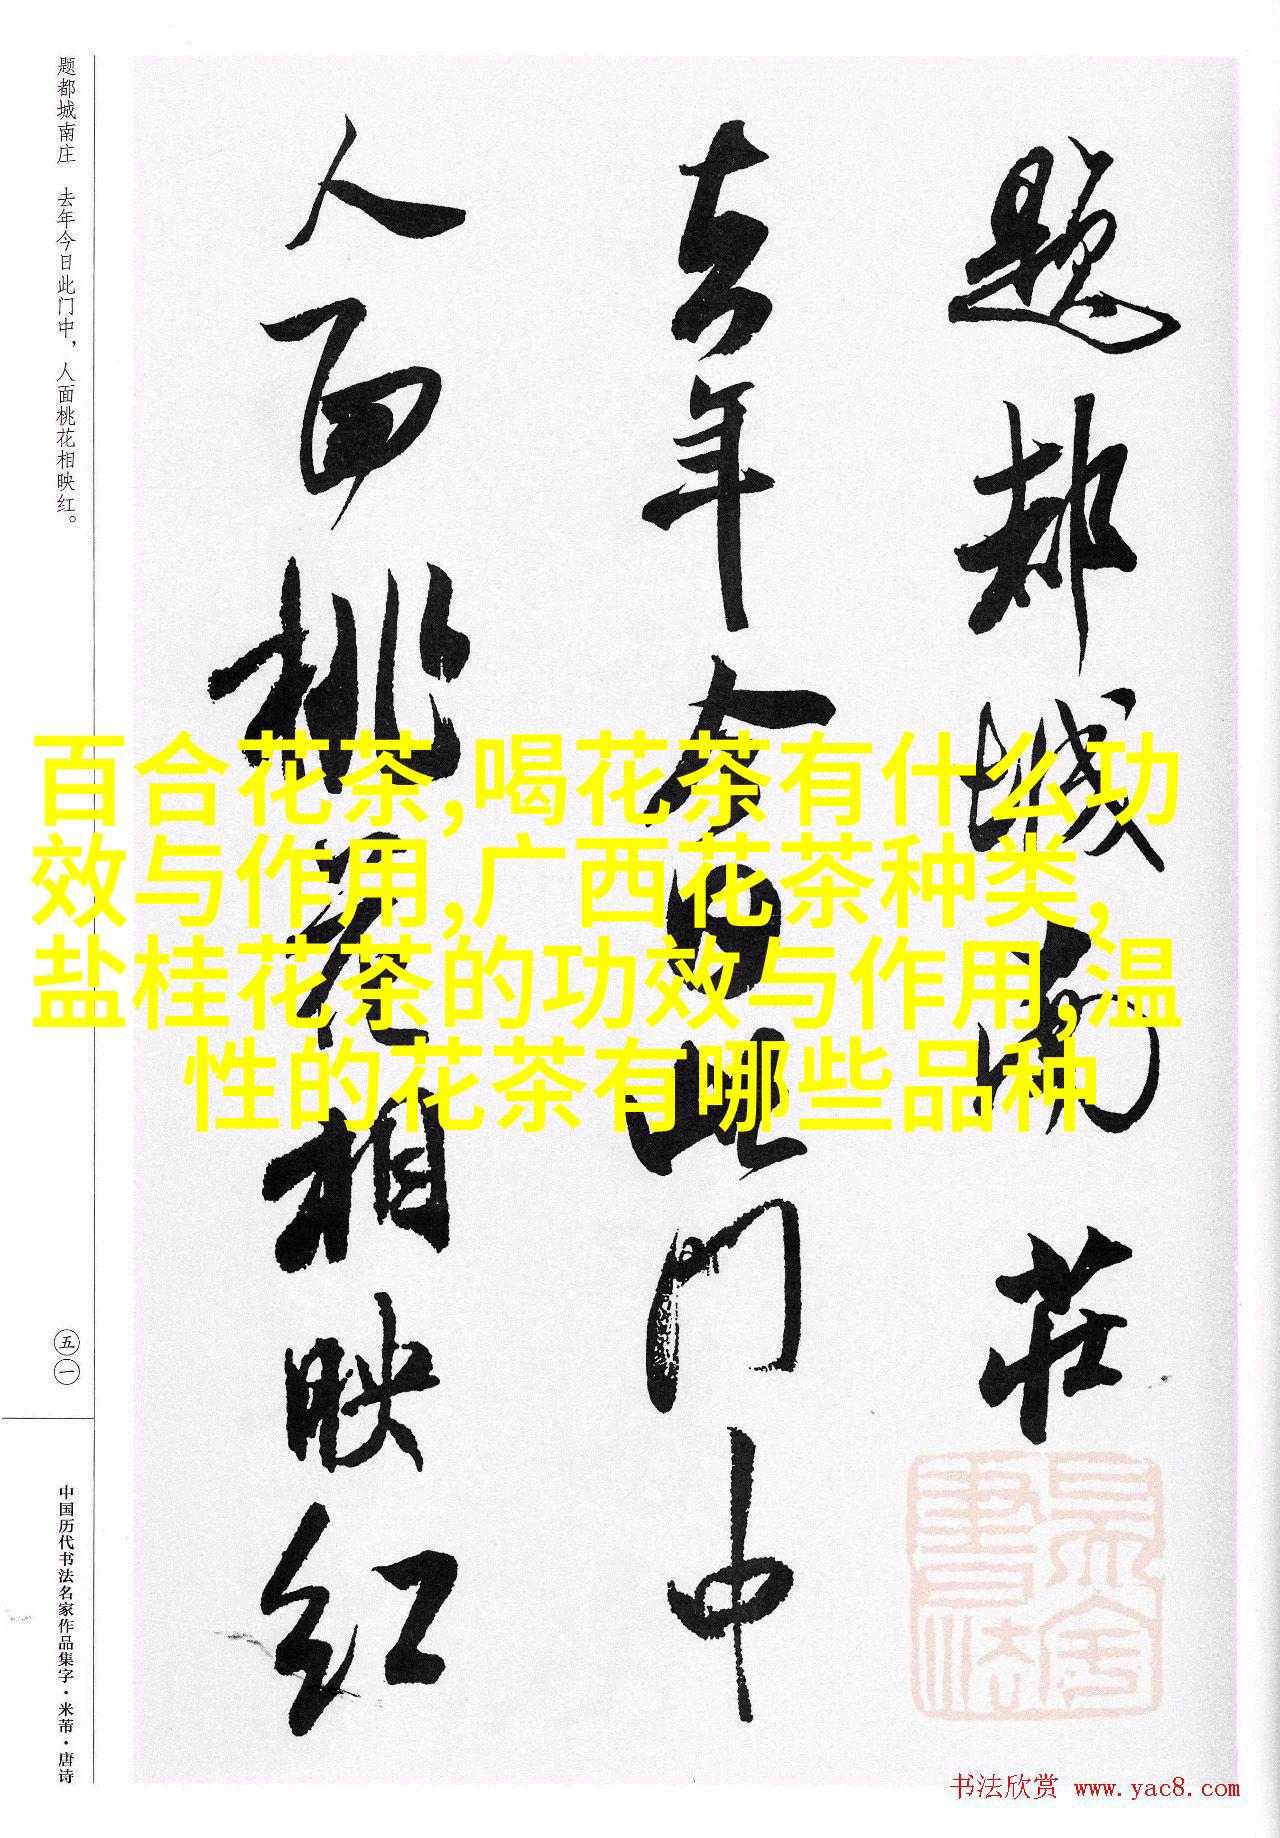 题都城南庄
去年今日此门中
人面桃花相映红
题都城南庄 去年今日此门中，人面桃花相映红。
五一
中国历代书法名家作品集字·米芾·唐诗
百合花茶,喝花茶有什么功
效与作用,广西花茶种类,
盐桂花茶的功效与作用,温
性的花茶有哪些品种
书法欣赏 www.yac8.com